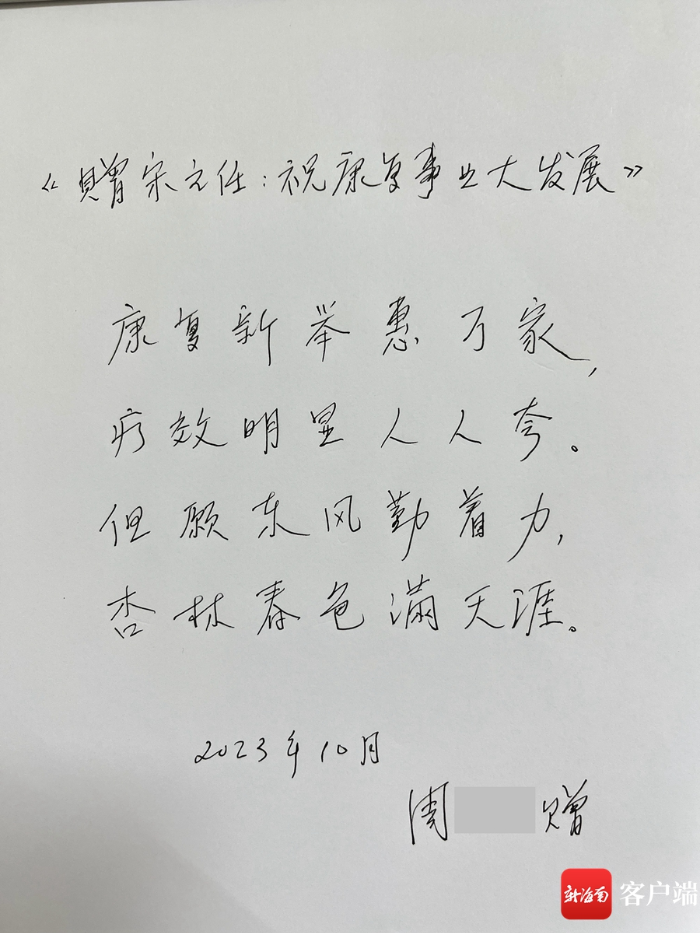 《赠宋主任：祝康复事业大发展》
康复新举惠万家，
疗效明显人人夸。
但愿东风勤着力，
杏林春色满天涯。
2023年10月
周 赠
新海南 客户端